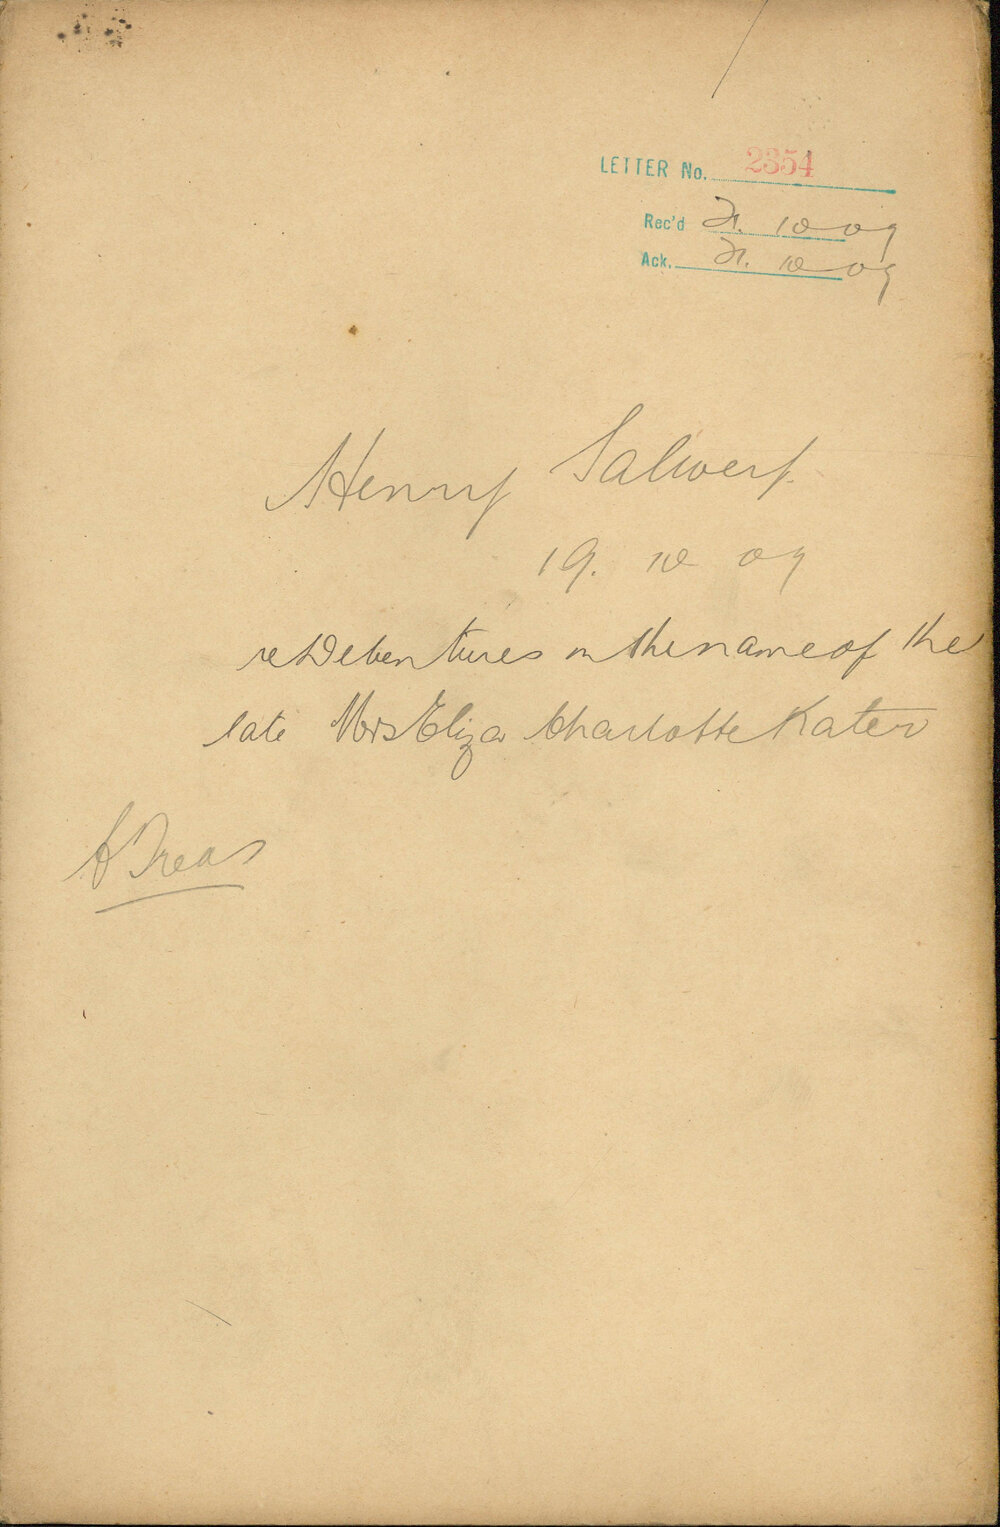 LETTER No. 2354
Rec'd 21. 10 09
Ack. 21. 10 09
Henry Salwey.
19. 10 09
re Debentures in the name of the
late Mrs Eliza Charlotte Kater
Treas